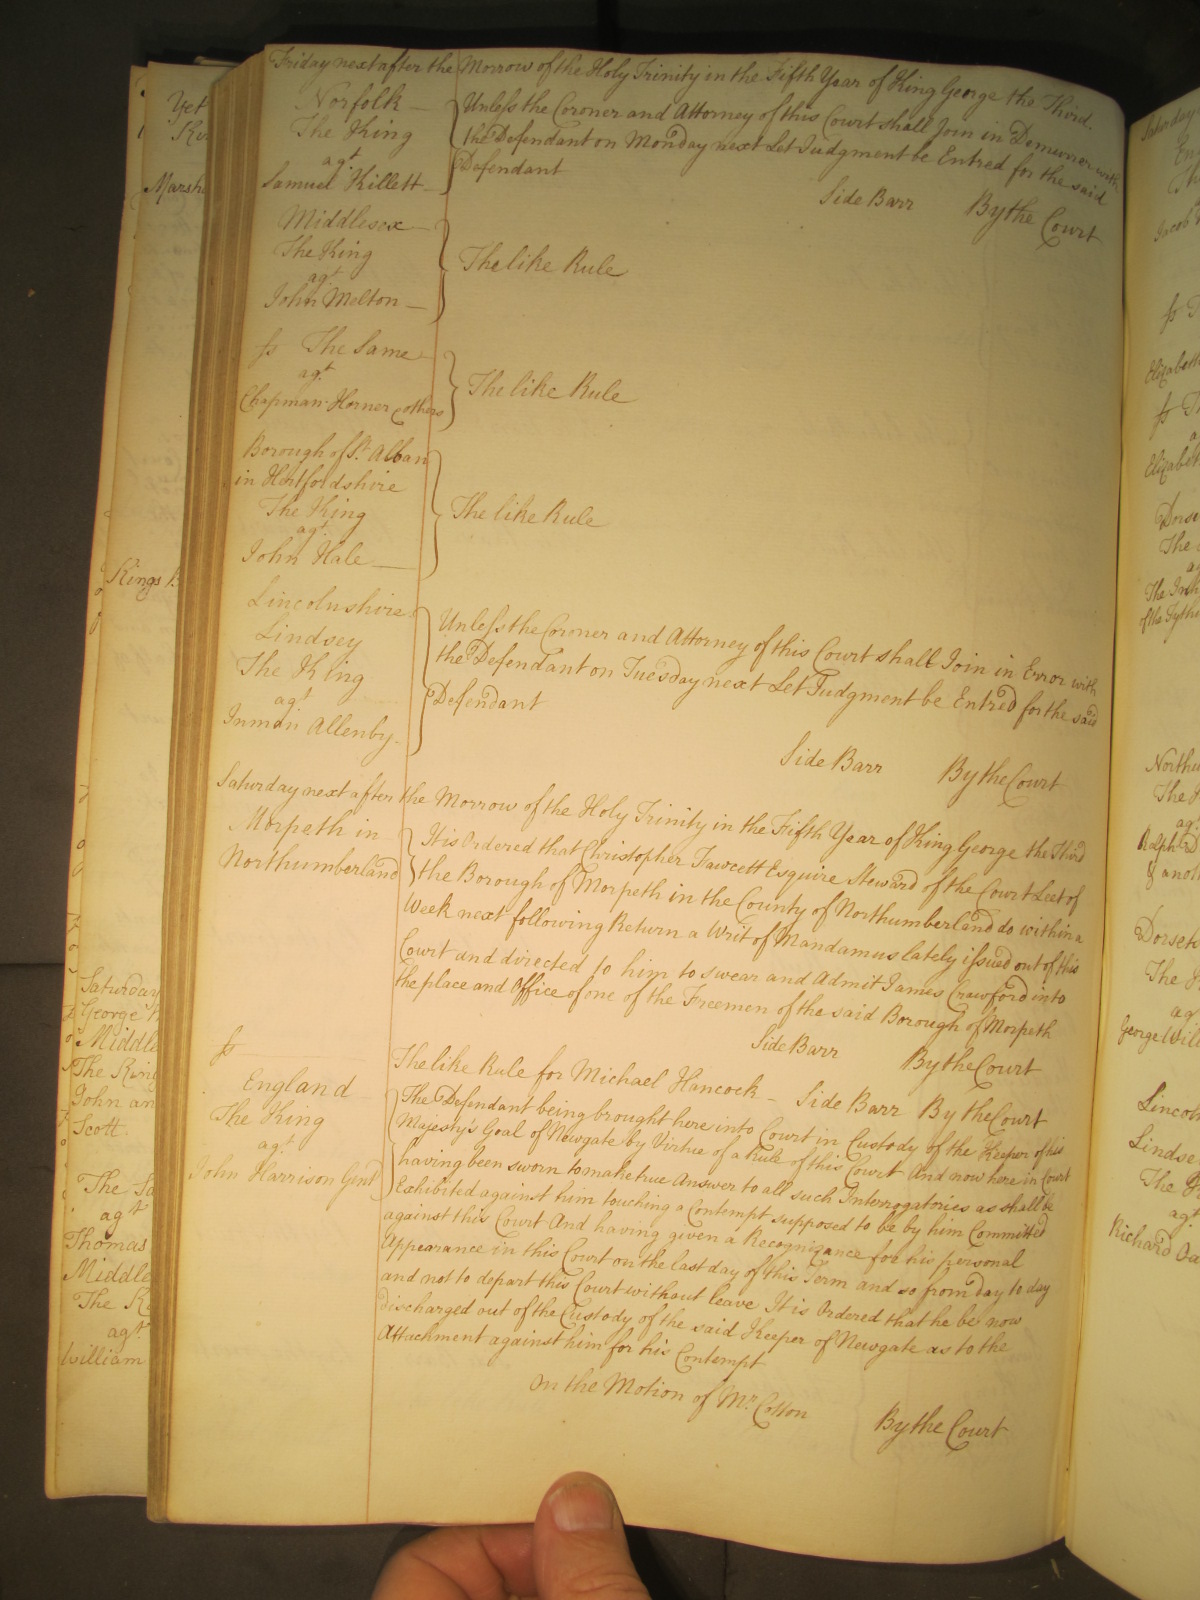 Friday next after the Morrow of the Holy Trinity in the Fifth Year of King George the Third.
Norfolk
The King
agt
Samuel Killett
Unless the Coroner and Attorney of this Court shall Join in Demurrer with
the Defendant on Monday next Let Judgment be Entred for the said
Defendant
Side Barr By the Court
Middlesex
The King
agt
John Melton
The like Rule
ss The Same
agt
Chapman Horner & others
The like Rule
Borough of St. Alban
in Hertfordshire
The King
agt
John Hale
The like Rule
Lincolnshire
Lindsey
The King
agt
Inman Allenby.
Unless the Coroner and Attorney of this Court shall Join in Error with
the Defendant on Tuesday next Let Judgment be Entred for the said
Defendant
Side Barr By the Court
Saturday next after the Morrow of the Holy Trinity in the Fifth Year of King George the Third
Morpeth in
Northumberland
It is Ordered that Christopher Fawcett Esquire Steward of the Court Leet of
the Borough of Morpeth in the County of Northumberland do within a
Week next following Return a Writ of Mandamus lately issued out of this
Court and directed to him to swear and Admit James Crawford into
the place and Office of one of the Freemen of the said Borough of Morpeth
Side Barr By the Court
ss
The like Rule for Michael Hancock - Side Barr By the Court
England
The King
agt
John Harrison Gent
The Defendant being brought here into Court in Custody of the Keeper of his
Majesty's Goal of Newgate by Virtue of a Rule of this Court And now here in Court
having been sworn to make true Answer to all such Interrogatories as shall be
Exhibited against him touching a Contempt supposed to be by him Committed
against this Court And having given a Recognizance for his personal
Appearance in this Court on the last day of this Term and so from day to day
and not to depart this Court without leave It is Ordered that he be now
discharged out of the Custody of the said Keeper of Newgate as to the
Attachment against him for his Contempt
On the Motion of Mr. Cotton
By the Court
Yet
Marsh
Kings B
Saturday
George
Middle
The King
John an
Scott
The Sa
agt
Thomas
Middle
The K
agt
William
Saturday
Jacob
ss T
Elizabeth
ss Th
Elizabeth
Dorse
The
ag
The Inh
of the Tythin
Northu
The K
agt
Ralph D
& anoth
Dorseth
The K
ag
George Wil
Lincoln
Lindse
The K
agt
Richard Oa